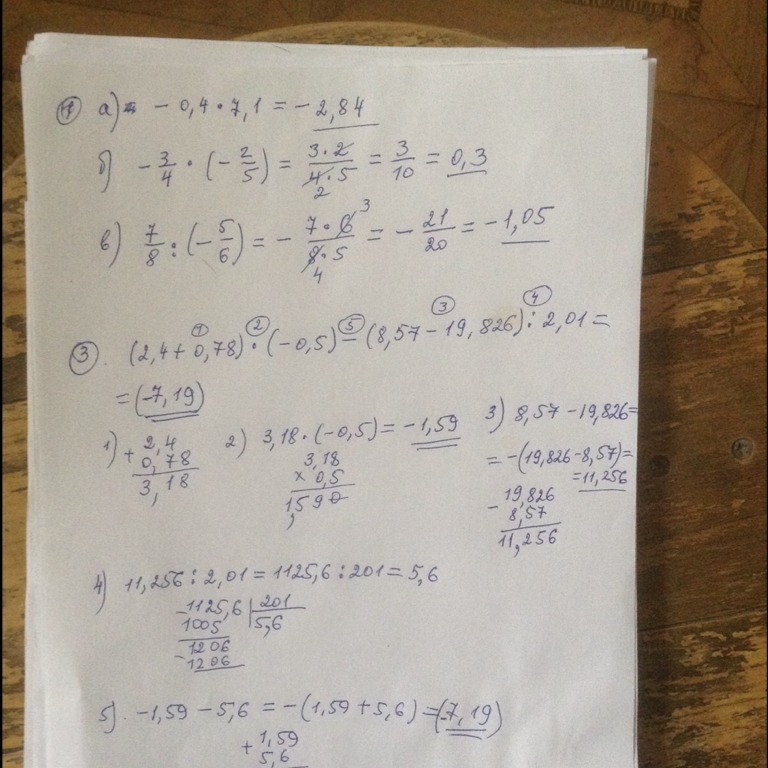 ① а) = - 0,4 • 7,1 = - 2,84
б) - 3/4 • (- 2/5) = 3·2/4·5 2 = 3/10 = 0,3
в) 7/8 : (- 5/6) = - 7·6 3/8·5 4 = - 21/20 = - 1,05
① ② ⑤ ③ ④
③. (2,4 + 0,78) • (-0,5) - (8,57 - 19,826) : 2,01 =
= (-7,19)
1) + 2,4
0,78
3,18
2) 3,18 · (-0,5) = -1,59
3,18
× 0,5
1,590
3) 8,57 - 19,826 =
= -(19,826 - 8,57) =
= 11,256
- 19,826
8,57
11,256
4) 11,256 : 2,01 = 1125,6 : 201 = 5,6
- 1125,6 | 201
1005 5,6
- 1206
1206
5). -1,59 - 5,6 = -(1,59 + 5,6) = (-7,19)
+ 1,59
5,6